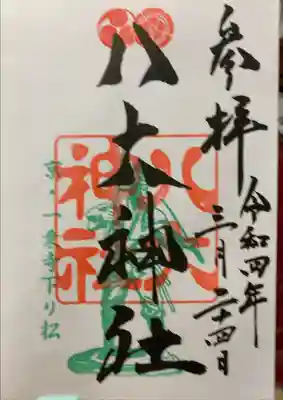 参拝
令和四年
三月二十四日
八大神社
八大
神社
京・一乗寺下り松